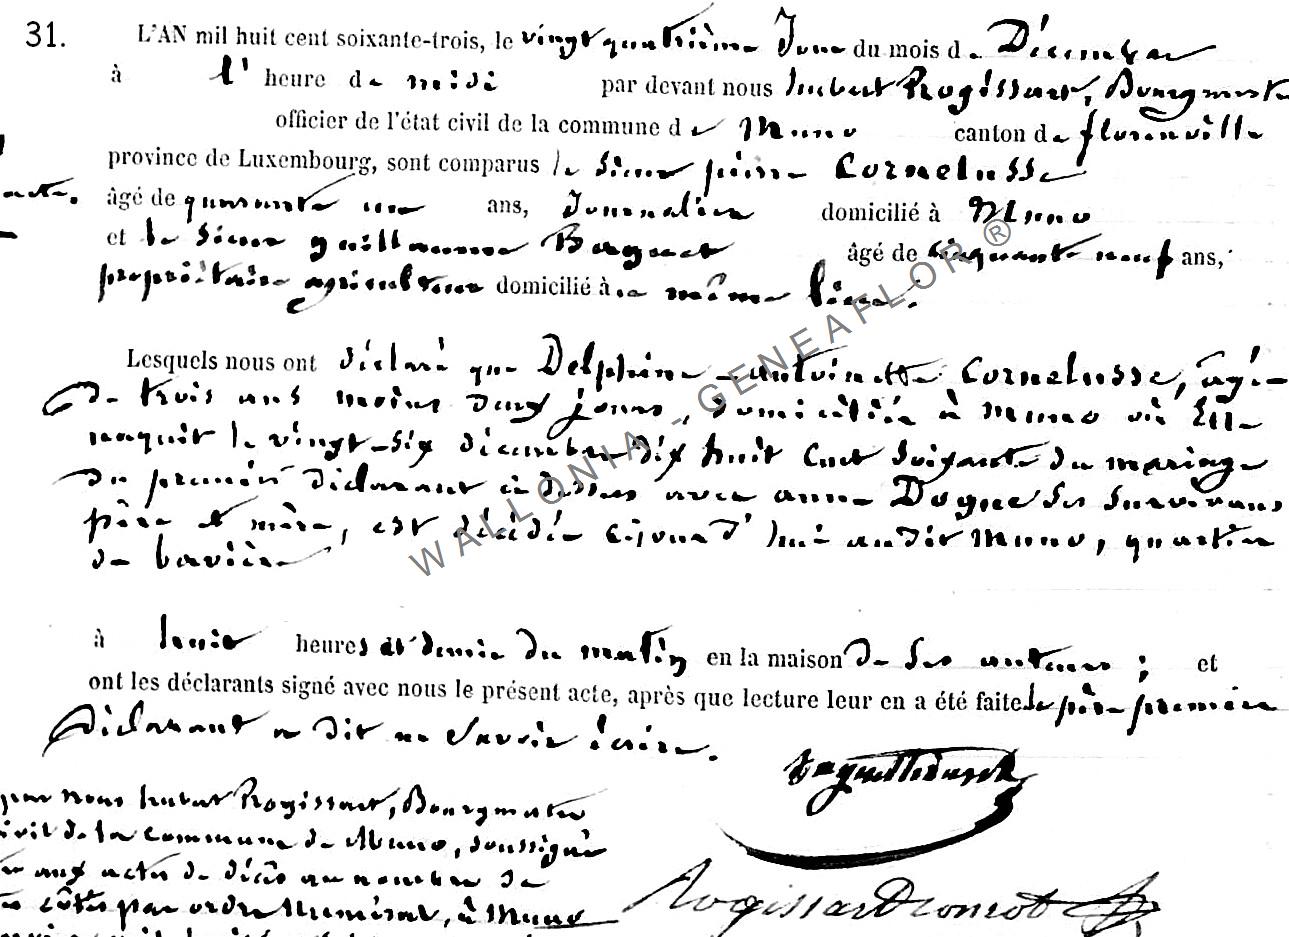 31. L'AN mil huit cent soixante-trois, le vingt quatrième Jour du mois de Décembre
à l' heure de midi par devant nous hubert Rogissart, Bourgmestre
officier de l'état civil de la commune de Muno canton de florenville
province de Luxembourg, sont comparus le sieur pierre Cornelusse
acte. âgé de quarante un ans, Journalier domicilié à Muno
et le sieur guillaume Baguet âgé de cinquante neuf ans,
propriétaire agriculteur domicilié à le même lieu.
Lesquels nous ont déclaré que Delphine-antoinette Cornelusse, âgée
de trois ans moins deux jours, domiciliée à Muno où Elle
naquit le vingt-six décembre dix huit cent soixante du mariage
du premier déclarant ci dessus avec anne Dogne ses survivans
père et mère, est décédée cejourd'hui audit Muno, quartier
de bavière
à huit heures et demie du matin en la maison de ses auteurs ; et
ont les déclarants signé avec nous le présent acte, après que lecture leur en a été faite le père premier
déclarant a dit ne savoir écrire.
par nous hubert Rogissart, Bourgmestre
civil de la commune de Muno, soussigné
aux actes de décès au nombre de
côtés par ordre Numéral, à Muno
WALLONIA - GENEAFLOR ®